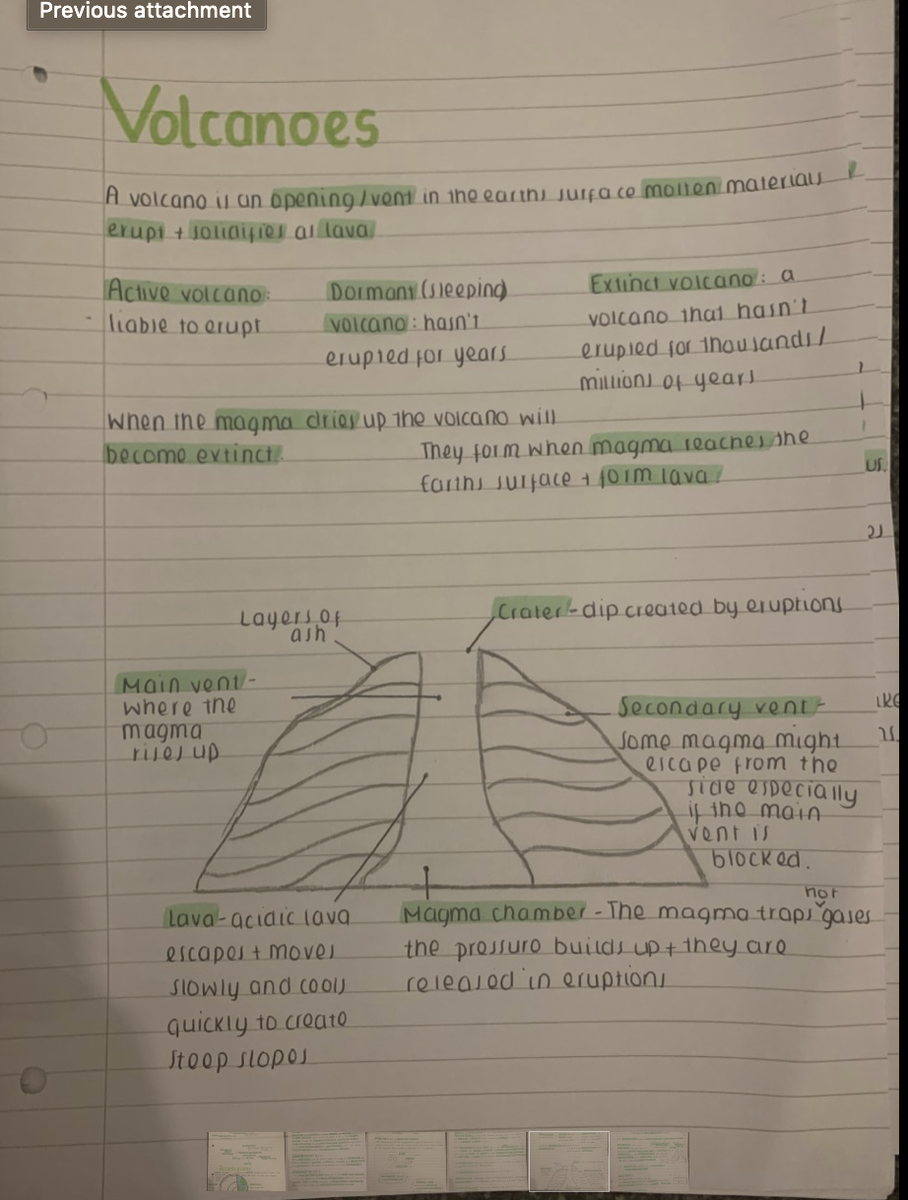 Previous attachment
Volcanoes
A volcano is an opening/vent in the earths surface molten materials
erupt + solidifies as lava
Active volcano:
liable to erupt
Dormant (sleeping)
volcano: hasn't
erupted for years
Extinct volcano: a
volcano that hasn't
erupted for thousands/
millions of years
When the magma dries up the volcano will
become extinct.
They form when magma reaches the
Earths surface + form lava.
Layers of
ash
Crater - dip created by eruptions
Main vent -
where the
magma
rises up
Secondary vent -
some magma might
escape from the
side especially
if the main
vent is
blocked.
Lava - acidic lava
escapes + moves
slowly and cools
quickly to create
steep slopes
Magma chamber - The magma traps hot gases
the pressure builds up + they are
released in eruptions